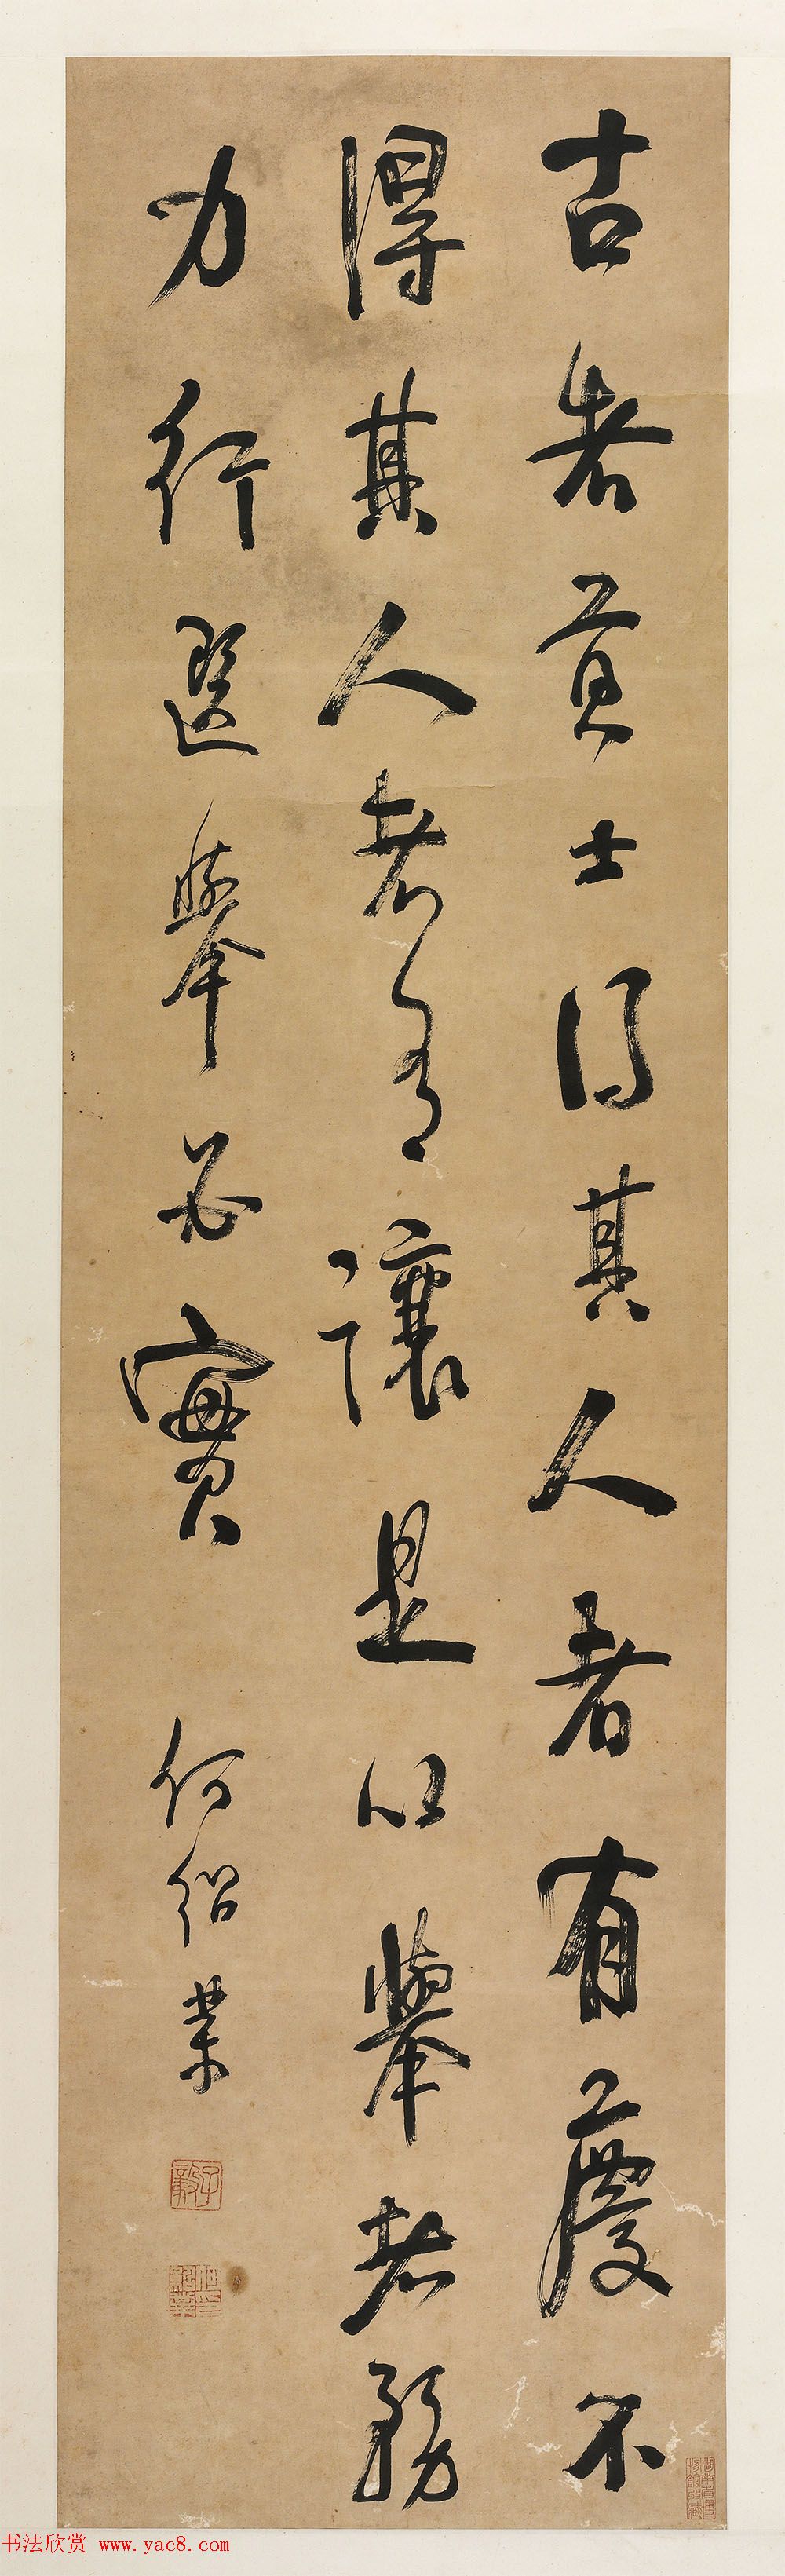 古者貢士得其人者有慶不
得其人者有讓是以舉者務
力行選舉必實
何紹業
子毅
何紹業印
书法欣赏 www.yac8.com